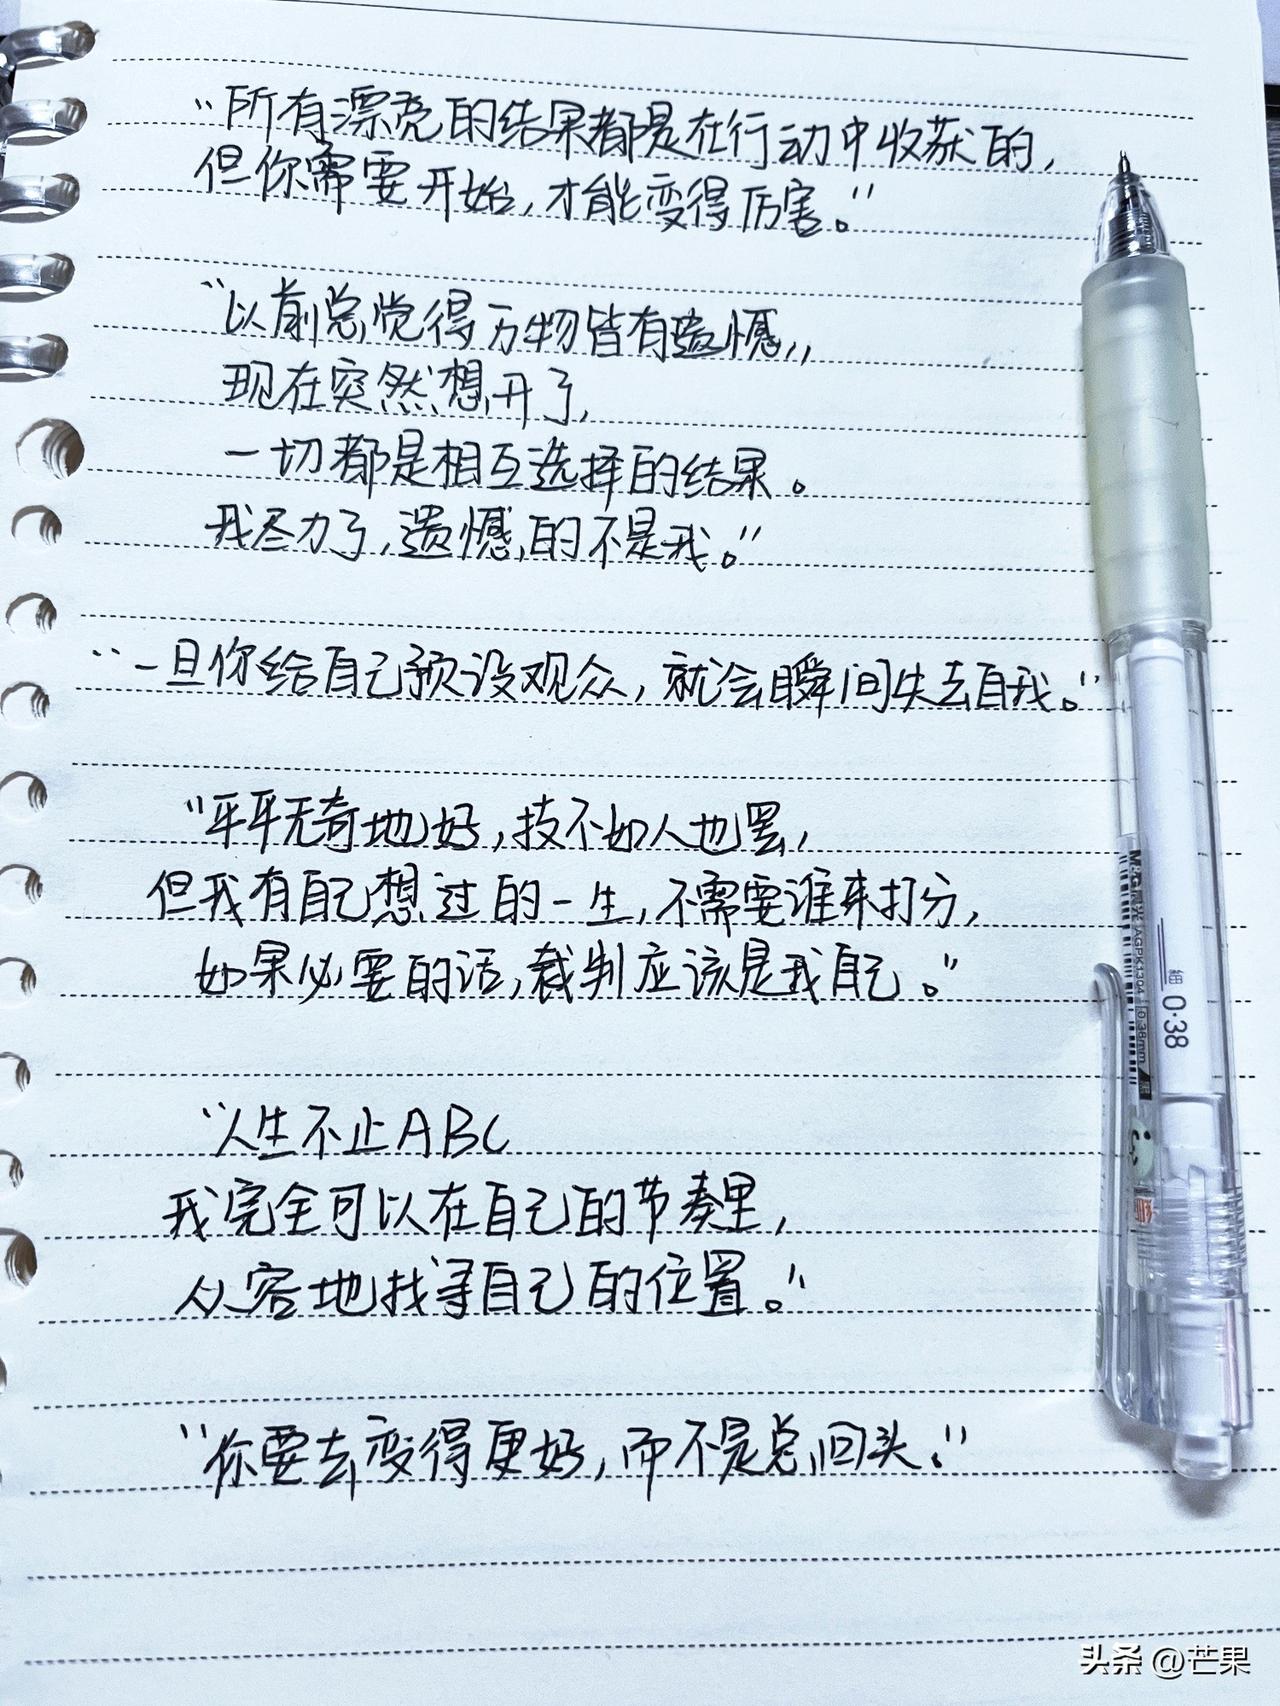 “所有漂亮的结果都是在行动中收获的,
但你需要开始,才能变得厉害。”
“以前总觉得万物皆有遗憾,,
现在突然想开了,
一切都是相互选择的结果。
我尽力了,遗憾的不是我。”
“一旦你给自己预设观众,就会瞬间失去自我。”
“平平无奇地好,技不如人也罢,
但我有自己想过的一生,不需要谁来打分,
如果必要的话,裁判应该是我自己。”
“人生不止ABC
我完全可以在自己的节奏里,
从容地找寻自己的位置。”
“你要去变得更好,而不是总回头.”
M&G晨光 AGPK1304 0.38mm
0.38
头条 @芒果